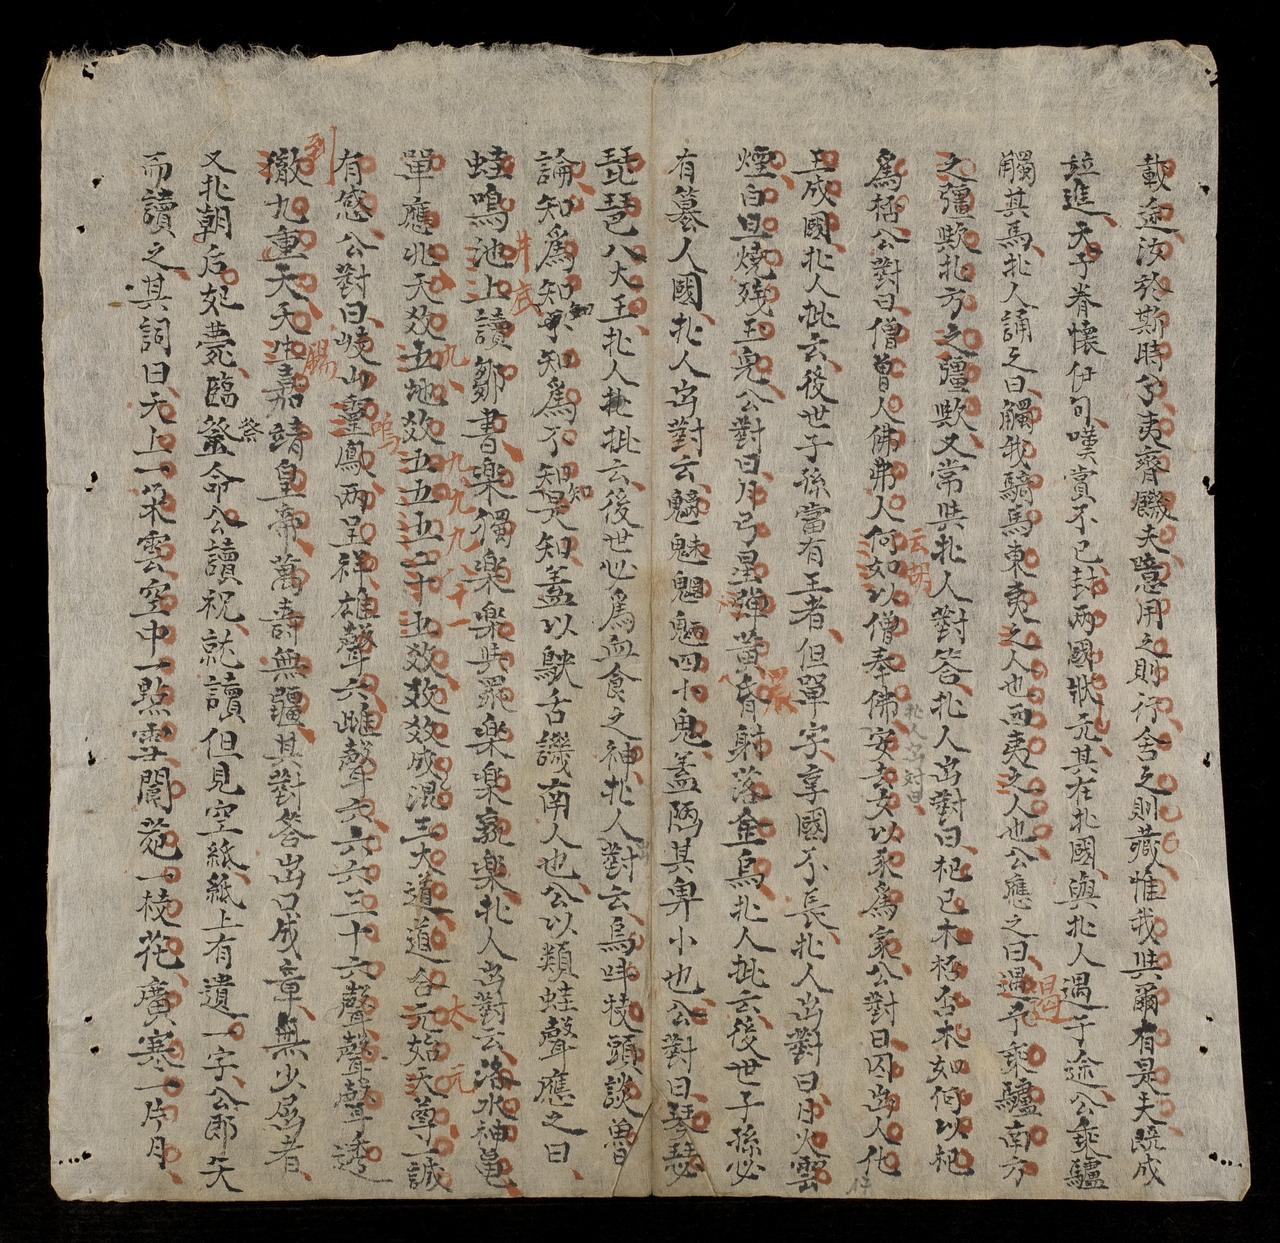 載途汝於斯時兮夷齊饑夫噫用之則行舍之則藏惟我與爾有是夫既成
竝進天子眷懷伊句嘆賞不已封兩國狀元其在北國與北人遇于途公乘驢
觸其馬北人誦之曰觸我騎馬東夷之人也西夷之人也公應之曰遇予乘驢南方
之彊歟北方之彊歟又常與北人對答北人出對曰杞已木杯否木如何以杞
爲杯公對曰僧曽人佛弗人何如以僧奉佛安去女以豕爲家公對曰囚出人化
王成國北人批云後世子孫當有王者但單字享國不長北人出對曰日火雲
煙白旦燒殘玉兔公對曰月弓星彈黃昏射落金烏北人批云後世子孫必
有簒人國北人出對云魑魅魍魎四小鬼盖陋其鼻小也公對曰琴瑟
琵琶八大王北人批云後世必爲血食之神北人對云烏呌枝頭談魯
論知爲知不知爲不知是知盖以鴃舌譏南人也公以類蛙聲應之曰
蛙鳴池上讀鄒書樂獨樂樂與衆樂樂孰樂北人出對云洛水神龜
單應兆天數五地數五五五二十五數數數成混三大道道合元始天尊一誠
有感公對曰岐山靈鳳兩呈祥雄聲六雌聲六六六三十六聲聲聲透
徹九重天天生嘉靖皇帝萬壽無疆其對答出口成章無少屈者
又北朝后妃薨臨祭命公讀祝就讀但見空紙紙上有遺一字公卽矢
而讀之其詞曰天上一朵雲空中一點雪閬苑一枝花廣寒一片月
列
井底
九
九九九八十一
鳴
云胡
北人出對曰
曷
太元
祭
知
知